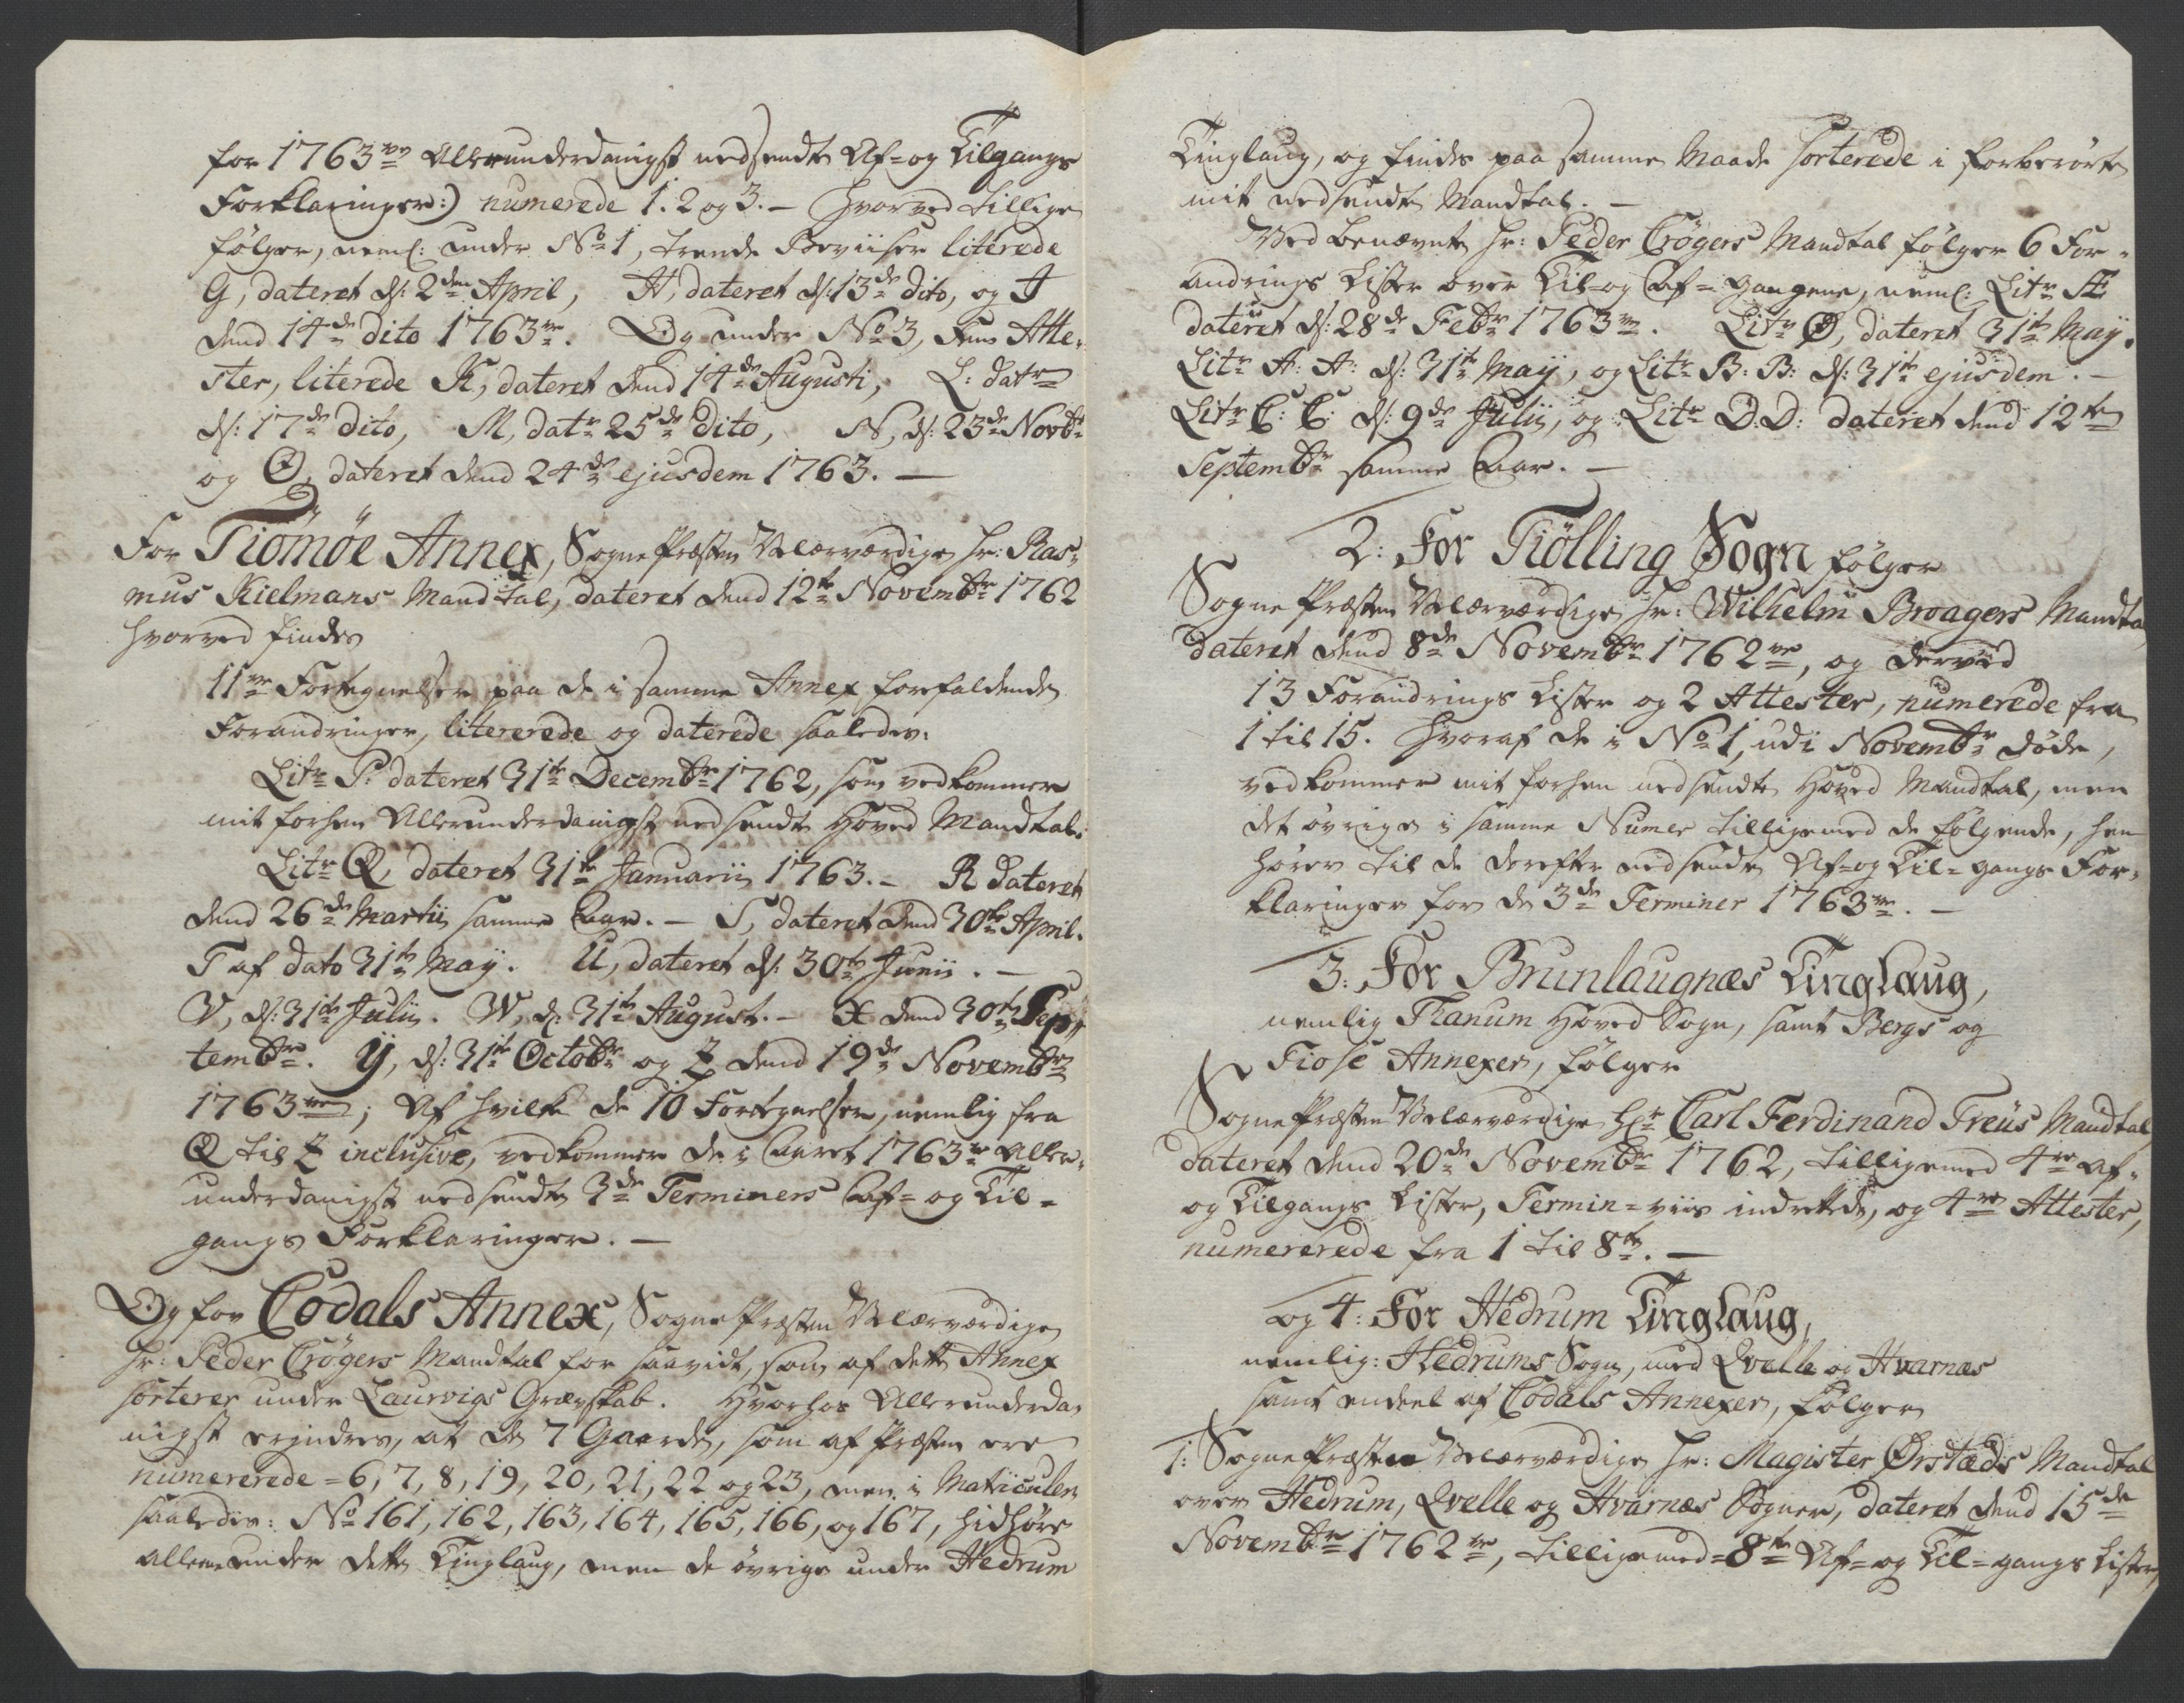 for 1763ve Allerunderdanigst nedsendte Af- og Tilgangs
Forklaringer:) numerede 1. 2 og 3. – Hvorved tillige
følger, neml: under No 1, trende Beviiser literede
G, dateret d: 2den April, H, dateret d: 13de dito, og I
dend 14de dito 1763ve. Og under No 3, Fem Atte-
ster, literede K, dateret dend 14de Augusti, L: datr
d: 17de dito, M, datr 25de dito, N, d: 23de Novbr
og O, dateret dend 24de ejusdem 1763. –
For Tiømøe Annex, Sogne Præsten Velærværdige Hr: Ras-
mus Kielmans Mandtal, dateret dend 12te Novembr 1762
hvorved findes
11ve Fortegnelser paa de i samme Annex forefaldende
Forandringer, litererede og daterede saaledes:
Litr P: dateret 31te Decembr 1762, som vedkommer
mit forhen Allerunderdanigst nedsendte Hoved Mandtal.
Litr Q, dateret 31te Januarii 1763. – R dateret
dend 26de Martii samme Aar. – S, dateret dend 30te April.
T af dato 31te Maÿ. U, dateret d: 30te Junii. –
V, d: 31te Julii. W, d: 31te August. – X dend 30te Sep-
tembr. Y, d: 31te Octobr og Z dend 19de Novembr
1763ve; Af hvilke de 10 Fortegnelser, nemlig fra
Q til Z inclusive, vedkommer de i Aaret 1763ve Aller-
underdanigst nedsendte 3de Terminers Af- og Til-
gangs Forklaringer. –
Og for Codals Annex, Sogne Præsten Velærværdige
Hr: Peder Crøgers Mandtal for saavidt, som af dette Annex
sorterer under Laurvigs Grævskab. Hvorhos Allerunderda-
nigst erindres, at de 7 Gaarde, som af Præsten ere
numererede = 6, 7, 8, 19, 20, 21, 22 og 23, men i Matriculen
saaledes: No 161, 162, 163, 164, 165, 166, og 167, hidhøre
allene under dette Tinglaug, men de øvrige under Hedrum
Tinglaug, og findes paa samme Maade sorterede i forberørte
mit nedsendte Mandtal. –
Ved benævnte Hr: Peder Crøgers Mandtal følger 6 For-
andrings Lister over Til- og Af- gangene, neml: Litr Æ
dateret d: 28de Febr 1763ve. Litr Ø, dateret 31te Maÿ.
Litr A: A: d: 31te Maÿ, og Litr B: B: d: 31te ejusdem. –
Litr C: C: d: 9de Julii, og Litr D. D: dateret dend 12te
Septembr samme Aar. –
2: For Tiølling Sogn følger
Sogne Præsten Velærværdige Hr: Wilhelm Broagers Mandta
dateret dend 8de Novembr 1762ve, og derved
13 Forandrings Lister og 2 Attester, numerede fra
1 til 15. Hvoraf de i No 1, udi Novembr døde,
vedkommer mit forhen nedsendte Hoved Mandtal, men
det øvrige i samme Numer tilligemed de følgende, hen
hører til de derefter nedsendte Af- og Til- gangs For-
klaringer for de 3de Terminer 1763ve. –
3: For Brunlaugnæs Tinglaug,
nemlig Thanum Hoved Sogn, samt Bergs og
Tiose Annexer, følger
Sogne Præsten Velærværdige Hr Carl Ferdinand Treüs Mandtal
dateret dend 20de Novembr 1762, tilligemed 4re Af-
og Tilgangs Lister, Termin = viis indrettede, og 4re Attester,
numererede fra 1 til 8te. –
og 4: For Hedrum Tinglaug,
nemlig: Hedrums Sogn, med Qvelle og Hvarnæs
samt endeel af Codals Annexer, følger
1: Sogne Præsten Velærværdige Hr: Magister Ørstæds Mandtal
over Hedrum, Qvelle og Hvarnæs Sogner, dateret dend 15de
Novembr 1762ve, tilligemed = 8te Af- og Til- gangs Lister,